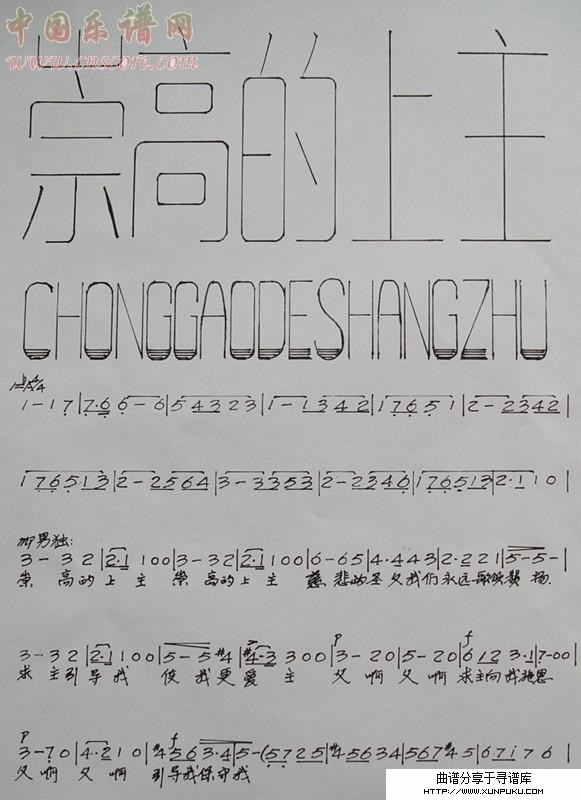 中国乐谱网
www.cnscore.com
崇高的上主
CHONGGAODESHANGZHU
1 - 1 7 | 7·6 6 - 6 | 5 4 3 2 2 3 | 1 - 1 3 4 2 | 1 7 6 5 1 | 2 - 2 3 4 2 |
1 7 6 5 1 3 | 2 - 2 5 6 4 | 3 - 3 3 5 3 | 2 - 2 3 4 6 | 1 7 6 5 1 3 | 2·1 1 0 |
mp 男独:
3 - 3 2 | 2·1 1 0 0 | 3 - 3 2 | 2·1 1 0 0 | 6 - 6 5 | 4·4 4 3 | 2·2 2 1 | 5 - 5 - |
崇 高的上主 崇 高的上主 慈 悲的圣父我们永远歌颂赞扬
p f
3 - 3 2 | 2·1 1 0 0 | 5 - 5 #4 | #4·3 3 0 0 | 3 - 2 0 | 5 - 2 0 | 6 1 2 3·1 | 7 - 0 0 |
求 主引导我 使 我更爱 主 父 啊 父 啊 求主向我施恩
p f
3 - 7 0 | 4·2 1 0 | #4 5 6 3·4 | 5 - (5 7 2 5 | #4 5 6 3 4 | 5 6 7 #4 5 | 6 7 i 7 6 |
父 啊 父 啊 引导我保守我
曲谱分享于寻谱库
HTTP://WWW.XUNPUKU.COM